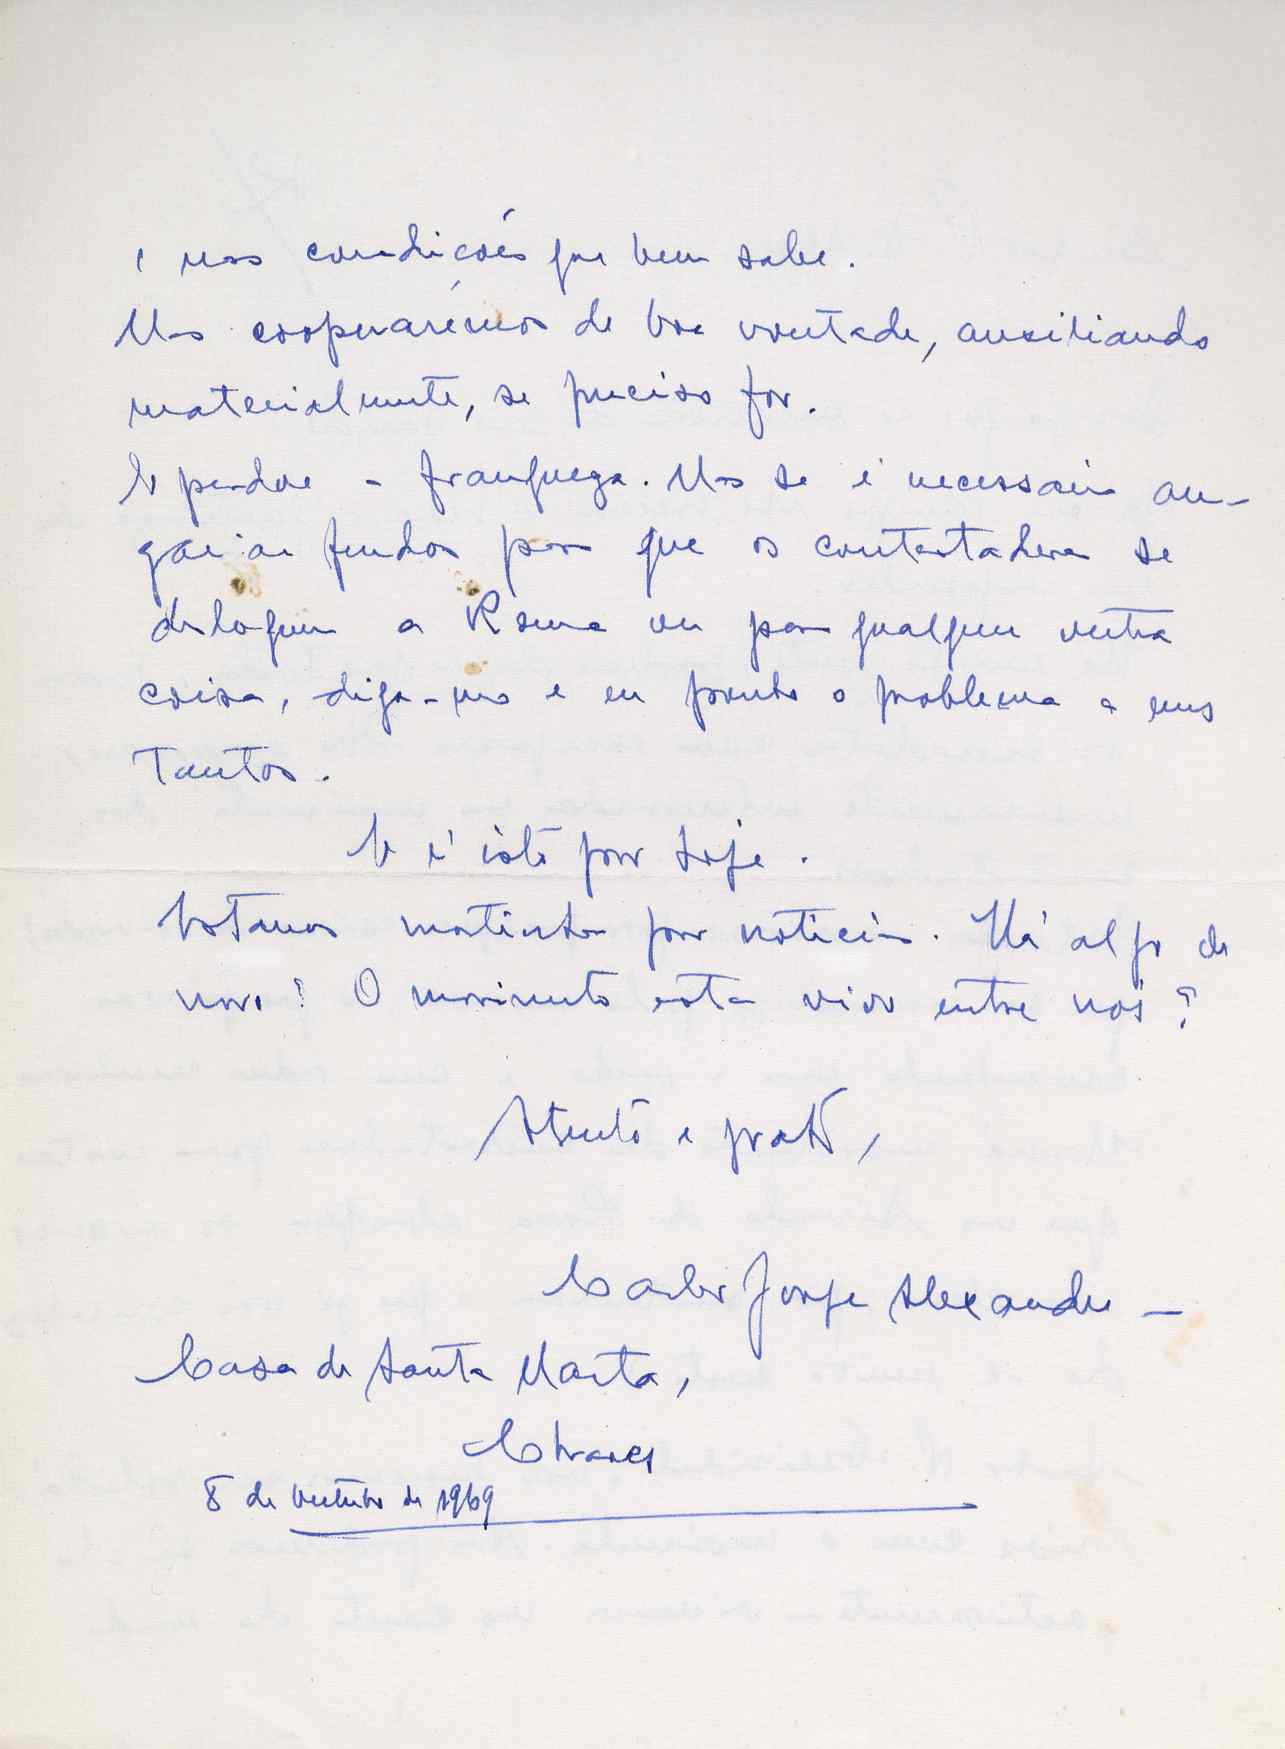 e nas condições que bem sabe.
Mas cooperarémos de boa vontade, auxiliando
materialmente, se preciso for.
E perdoe a franqueza. Mas se é necessário an-
gariar fundos para que os contestadores se
desloquem a Roma ou para qualquer outra
coisa, diga-nos e eu ponho o problema a uns
tantos.
E é isto por hoje.
Estamos mortinhos por notícias. Há algo de
novo? O movimento está vivo entre nós?
Atento e grato,
Carlos Jorge Alexandre —
Casa de Santa Marta,
Chaves
8 de outubro de 1969